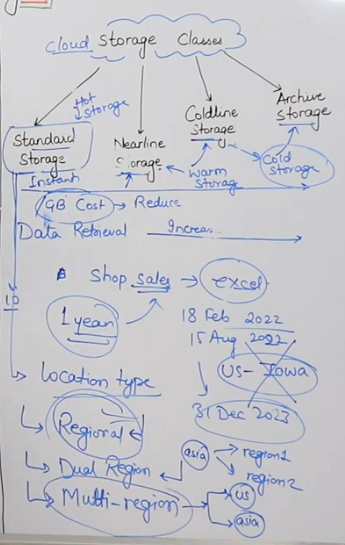 cloud Storage Classes
Hot
Storage
Standard
Storage
Nearline
Storage
Coldline
Storage
Archive
Storage
Instant
Warm
Storage
Cold
Storage
GB Cost → Reduce
Data Retrieval Increas
Shop Sales → excel
1 year
18 Feb 2022
15 Aug 2022
US - Iowa
31 Dec 2023
10
Location type
Regional
Dual Region
asia
region 1
region 2
Multi-region
US
asia